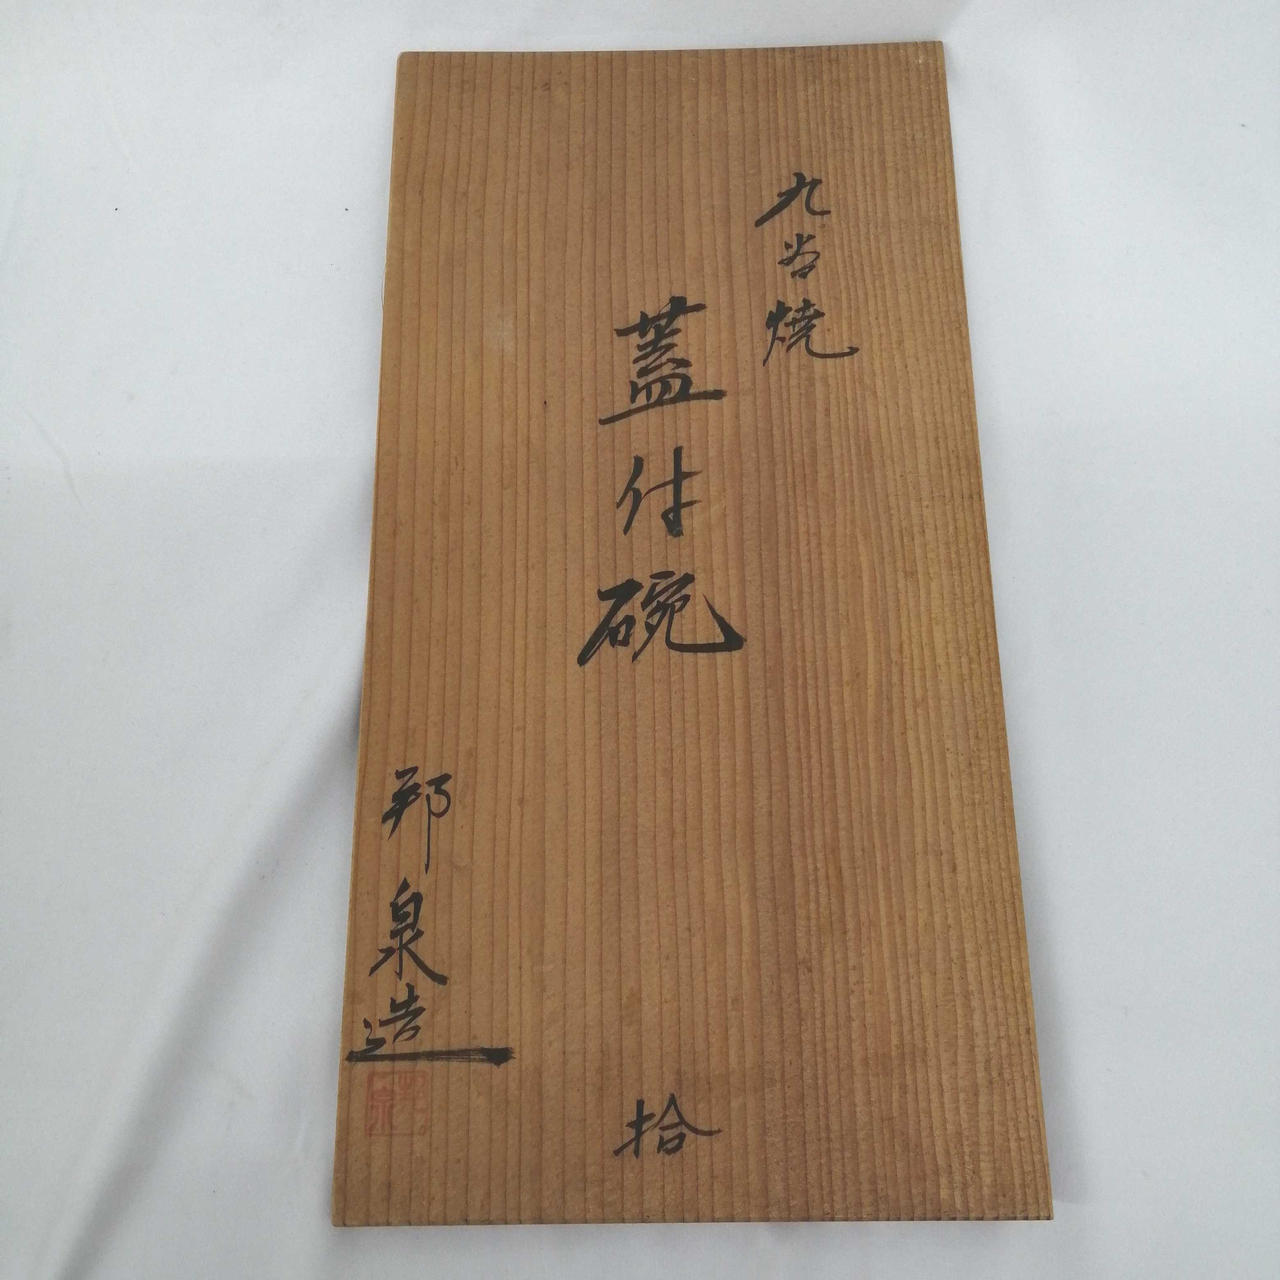 九谷焼
蓋付碗
拾
邦泉造